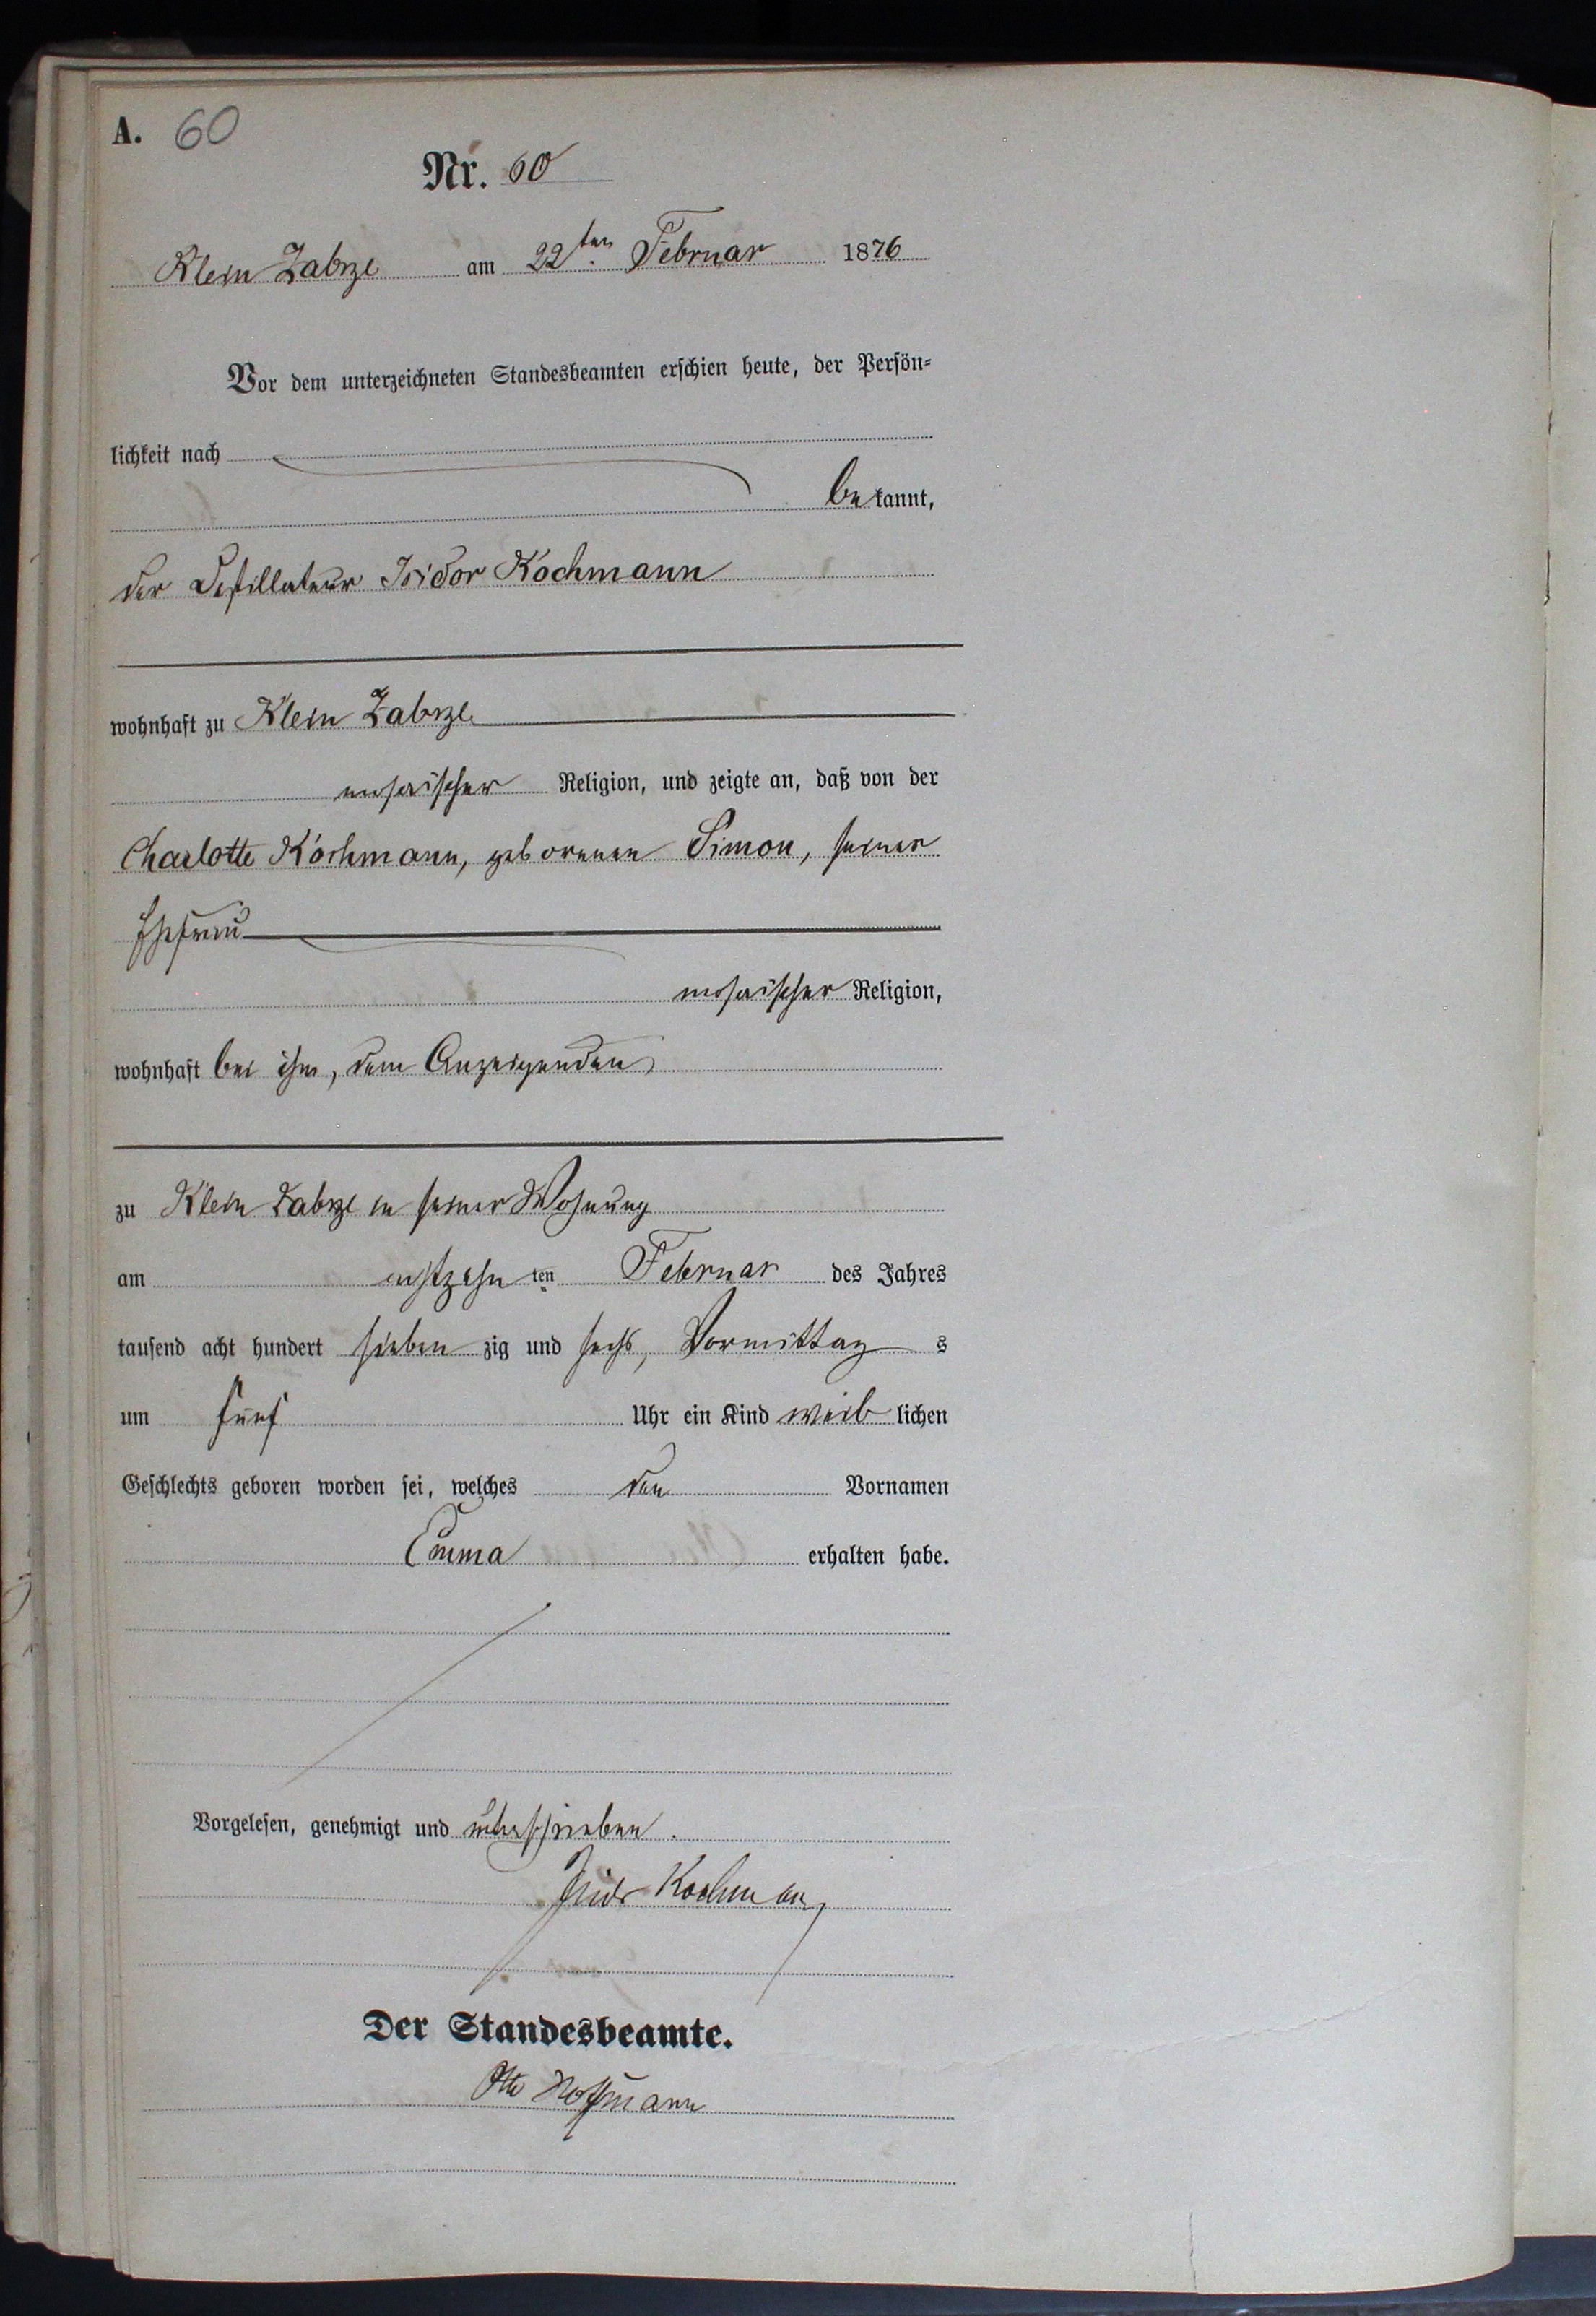 A. 60
Nr. 60
Klein Zabrze am 22ten Februar 1876
Vor dem unterzeichneten Standesbeamten erschien heute, der Persön=
lichkeit nach
bekannt,
der Destillateur Isidor Kochmann
wohnhaft zu Klein Zabrze
mosaischer Religion, und zeigte an, daß von der
Charlotte Kochmann, geborenen Simon, seiner
Ehefrau
mosaischer Religion,
wohnhaft bei ihm, dem Anzeigenden
zu Klein Zabrze in seiner Wohnung
am achtzehn ten Februar des Jahres
tausend acht hundert sieben zig und sechs, Vormittag s
um fünf Uhr ein Kind weib lichen
Geschlechts geboren worden sei, welches den Vornamen
Emma erhalten habe.
Vorgelesen, genehmigt und unterschrieben.
Isidor Kochmann
Der Standesbeamte.
Otto Hoffmann